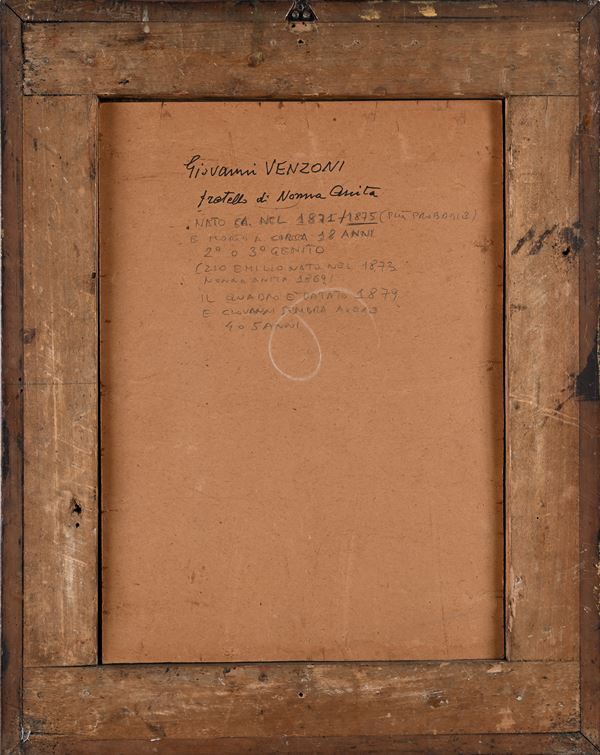 Giovanni VENZONI
fratello di Nonna Anita
NATO CA. NEL 1871/1875 (PIÙ PROBABILE)
E MORTO A CIRCA 18 ANNI
2° O 3° GENITO
(ZIO EMILIO NATO NEL 1873
NONNA ANITA 1869)
IL QUADRO E' DATATO 1879
E GIOVANNI SEMBRA AVERE
4 O 5 ANNI
8